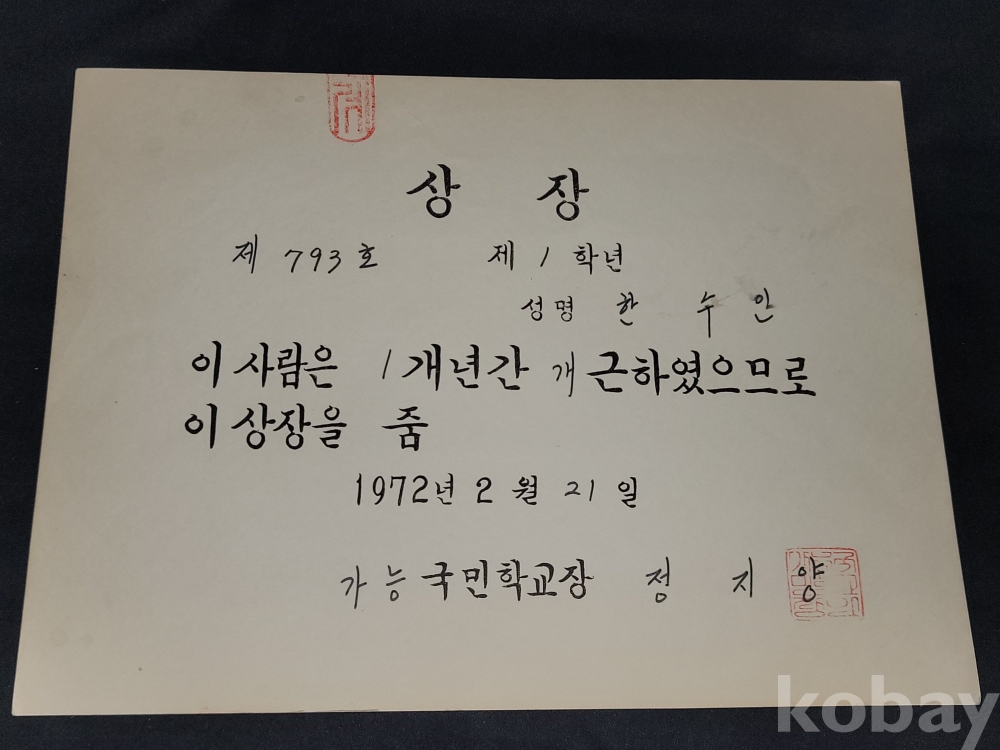 상 장
제 793 호 제 1 학년
성명 한 수 인
이 사람은 1 개년간 개 근하였으므로
이 상장을 줌
1972년 2 월 21 일
가능 국민학교장 정 지 양
kobay